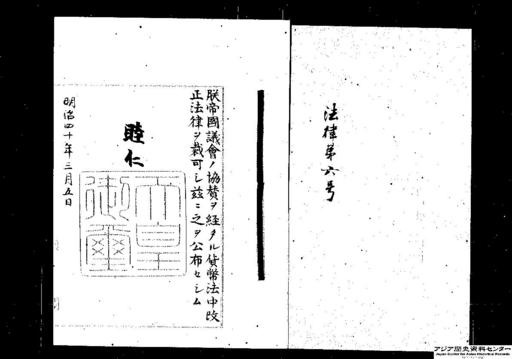 法律第六号
朕帝國議會ノ協賛ヲ経タル貨幣法中改
正法律ヲ裁可シ茲ニ之ヲ公布セシム
睦仁
天皇
御璽
明治四十年三月五日
アジア歴史資料センター
Japan Center for Asian Historical Records